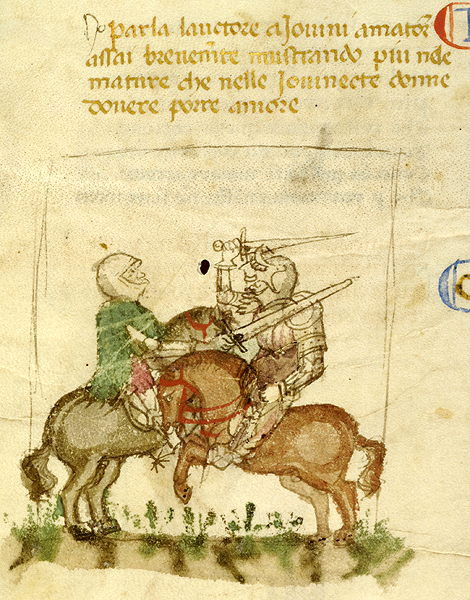 parla lauctore a Jovini amator
assai brevemte mustrando piu nele
mature che nelle Jovinecte donne
dovere porre amore